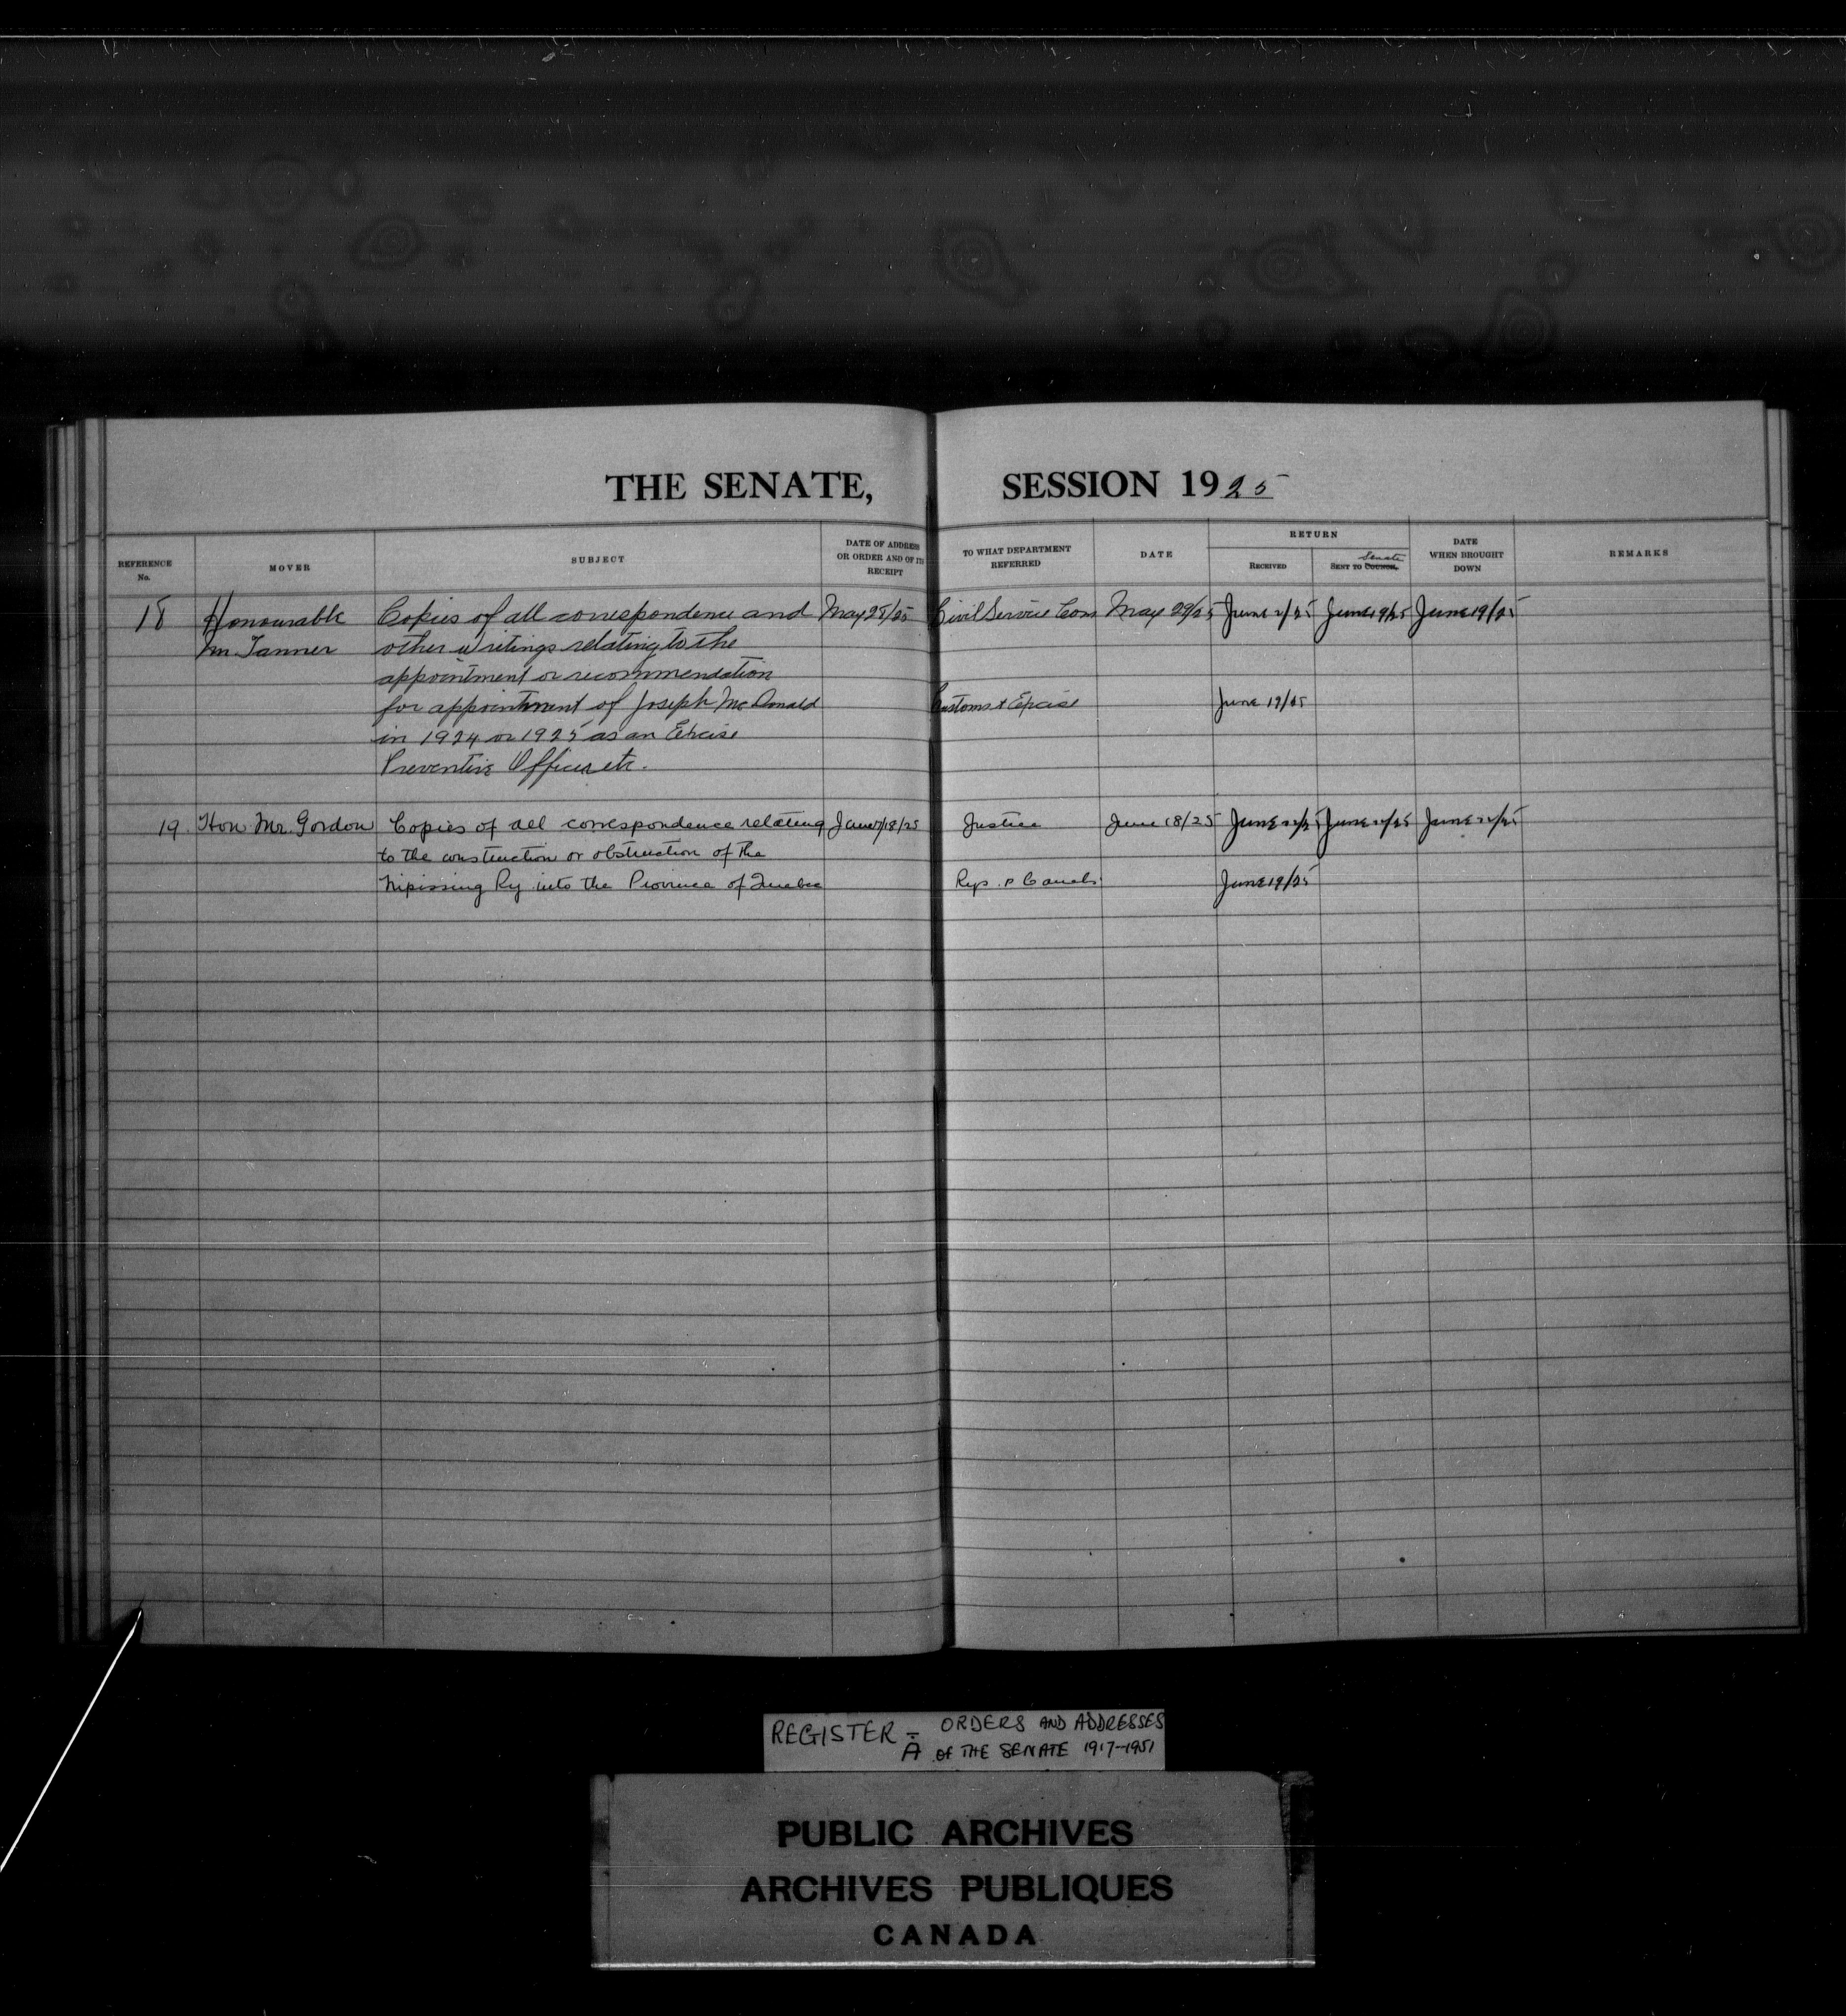 THE SENATE, SESSION 1925
REFERENCE No. MOVER SUBJECT DATE OF ADDRESS OR ORDER AND OF ITS RECEIPT TO WHAT DEPARTMENT REFERRED DATE RETURN RECEIVED SENT TO COUNCIL Senate DATE WHEN BROUGHT DOWN REMARKS
18 Honourable Copies of all correspondence and May 28/25 Civil Service Com May 29/25 June 2/25 June 19/25 June 19/25
Mr. Tanner other writings relating to the
appointment or recommendation
for appointment of Joseph McDonald Customs & Excise June 19/25
in 1924 or 1925 as an Excise
Preventive Officer etc.
19. Hon. Mr. Gordon Copies of all correspondence relating June 18/25 Justice June 18/25 June 22/25 June 22/25 June 22/25
to the construction or obstruction of the
Nipissing Ry into the Province of Quebec Rys. & Canals June 19/25
REGISTER - ORDERS AND ADDRESSES
A OF THE SENATE 1917-1951
PUBLIC ARCHIVES
ARCHIVES PUBLIQUES
CANADA